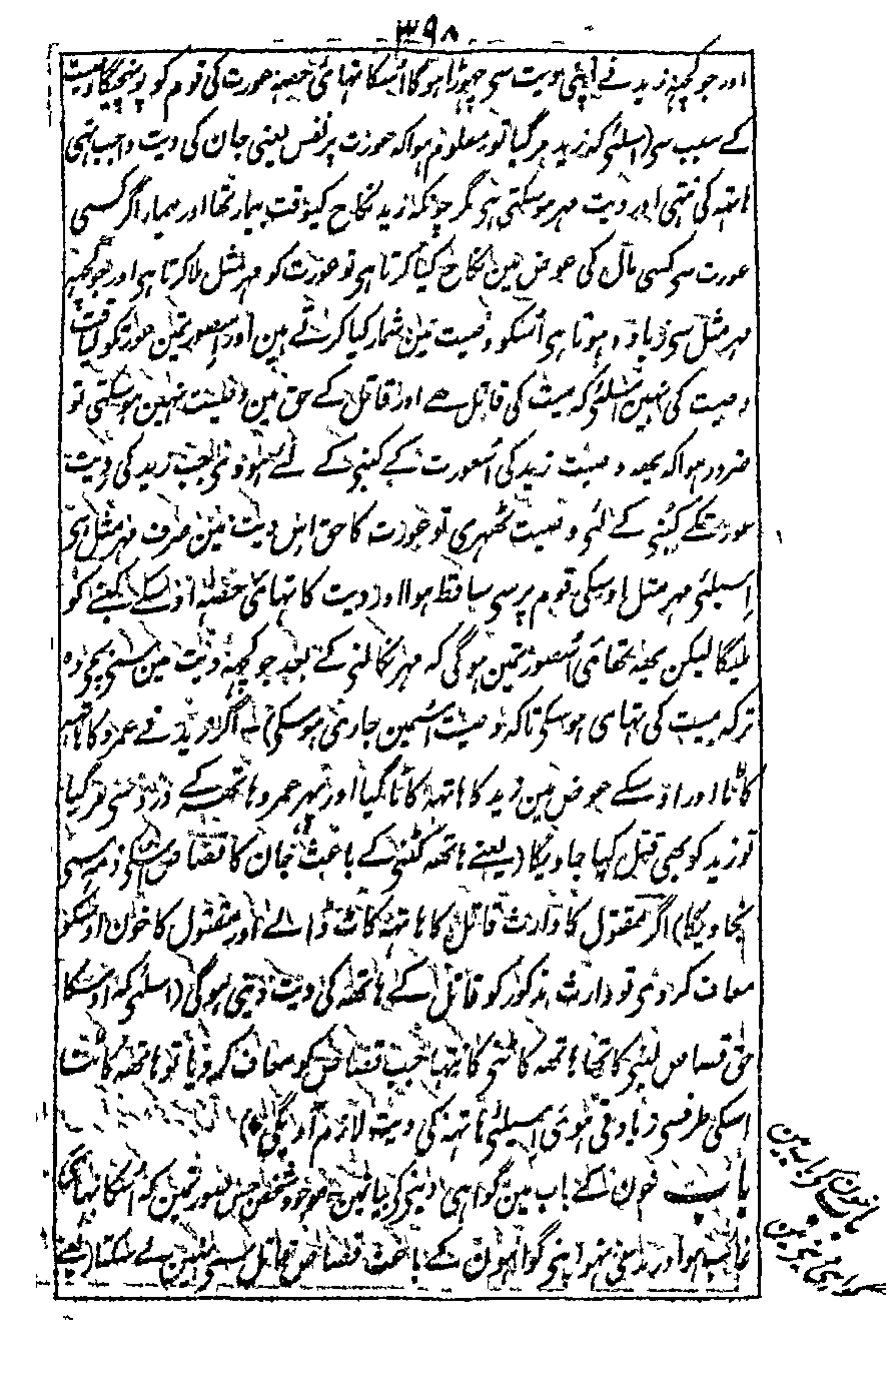 ۳۹۸
اور جو کچھہ زید نے اپنی دیت سی چھوڑا ہوگا اُسکا تہائی حصہ عورت کی قوم کو پہنچیگا وصیت
کے سبب سی (اسلئی کہ زید مر گیا تو معلوم ہوا کہ عورت پر نفس یعنی جان کی دیت واجب تہی
ہاتہہ کی نتہی اور دیت مہر ہو سکتی ہی مگر چونکہ زید نکاح کیوقت بیمار تھا اور بیمار اگر کسی
عورت سی کسی مال کی عوض مین نکاح کیا کرتا ہی تو عورت کو مہر مثل ملا کرتا ہی اور جو کچھہ
مہر مثل سی زیادہ ہوتا ہی اُسکو وصیت مین شمار کیا کرتے ہین اور اسصورتمین عورتکو لیاقت
وصیت کی نہین اسلئی کہ میت کی قاتل ہے اور قاتل کے حق مین وصیت نہین ہو سکتی تو
ضرور ہوا کہ یہہ وصیت زید کی اُسعورت کے کنبی کے لئے ہو وی جب زید کی دیت
عورتکے کنبی کے لئی وصیت ٹھہری تو عورت کا حق اس دیت مین صرف مہر مثل ہی
اِسیلئی مہر مثل اوسکی قوم پر سی ساقط ہوا اور دیت کا تہائی حصہ اوسکے کنبے کو
ملیگا لیکن یہہ تہائی اُسصورتمین ہوگی کہ مہر نکالنی کے بعد جو کچھہ دیت مین سی بچی وہ
ترکہ میت کی تہای ہو سکی تاکہ وصیت اسمین جاری ہو سکی) اگر زید نے عمرو کا ہاتہہ
کاٹا اور اوسکے عوض مین زید کا ہاتہہ کاٹا گیا اور پہر عمرو ہاتھہ کے درد سی مر گیا
تو زید کو بھی قتل کیا جاویگا (یعنے ہاتھہ کٹنی کے باعث جان کا قصاص اسکی ذمہ سی
نجاویگا) اگر مقتول کا وارث قاتل کا ہاتہہ کاٹ ڈالے اور مقتول کا خون اوسکو
معاف کر دی تو وارث مذکور کو قاتل کے ہاتھہ کی دیت دینی ہوگی (اسلئی کہ اوسکا
حق قصاص لینی کا تھا ہاتھہ کاٹنی کا نتہا جب قصاص کو معاف کر دیا تو ہاتھہ کاٹنا
اسکی طرفسی زیادتی ہوئی اسیلئی ہاتہہ کی دیت لازم آویگی)
باب خون کے باب مین گواہی دینی کی بیانمین موجود شخص جس صورتمین کہ اُسکا بہائی
غائب ہو اور مدعی نہو اپنی گواہون کے باعث قصاص قاتل سی نہین لے سکتا (یعنے
باب خون کی باب مین
گواہی دینی مین